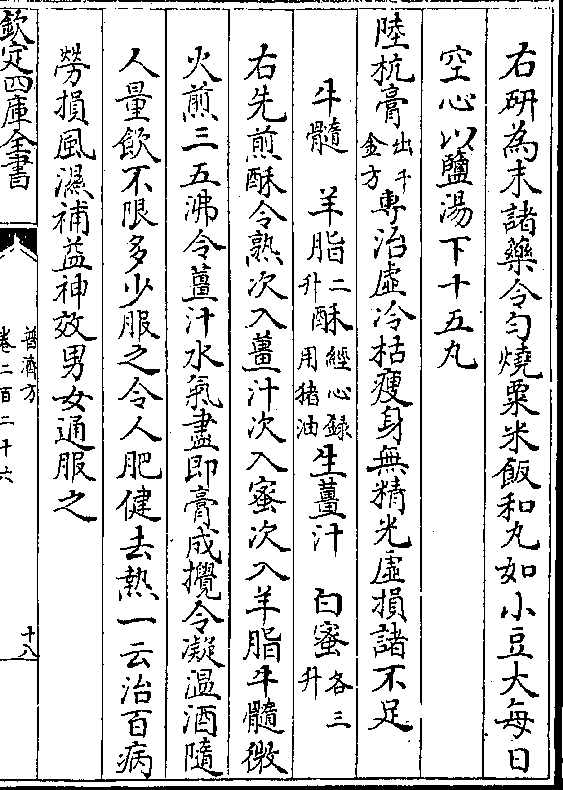 右研為末諸藥令勻燒粟米飯和丸如小豆大每日
空心以鹽湯下十五丸
陸抗膏出千金方專治虛冷枯瘦身無精光虛損諸不足
牛髓 羊脂二升 酥經心録用猪油 生薑汁 白蜜各三升
右先煎酥令熟次入薑汁次入蜜次入羊脂牛髓微
火煎三五沸令薑汁水氣盡即膏成攪令凝温酒隨
人量飲不限多少服之令人肥健去熱一云治百病
勞損風濕補益神效男女通服之
欽定四庫全書
普濟方
卷二百二十六
十八